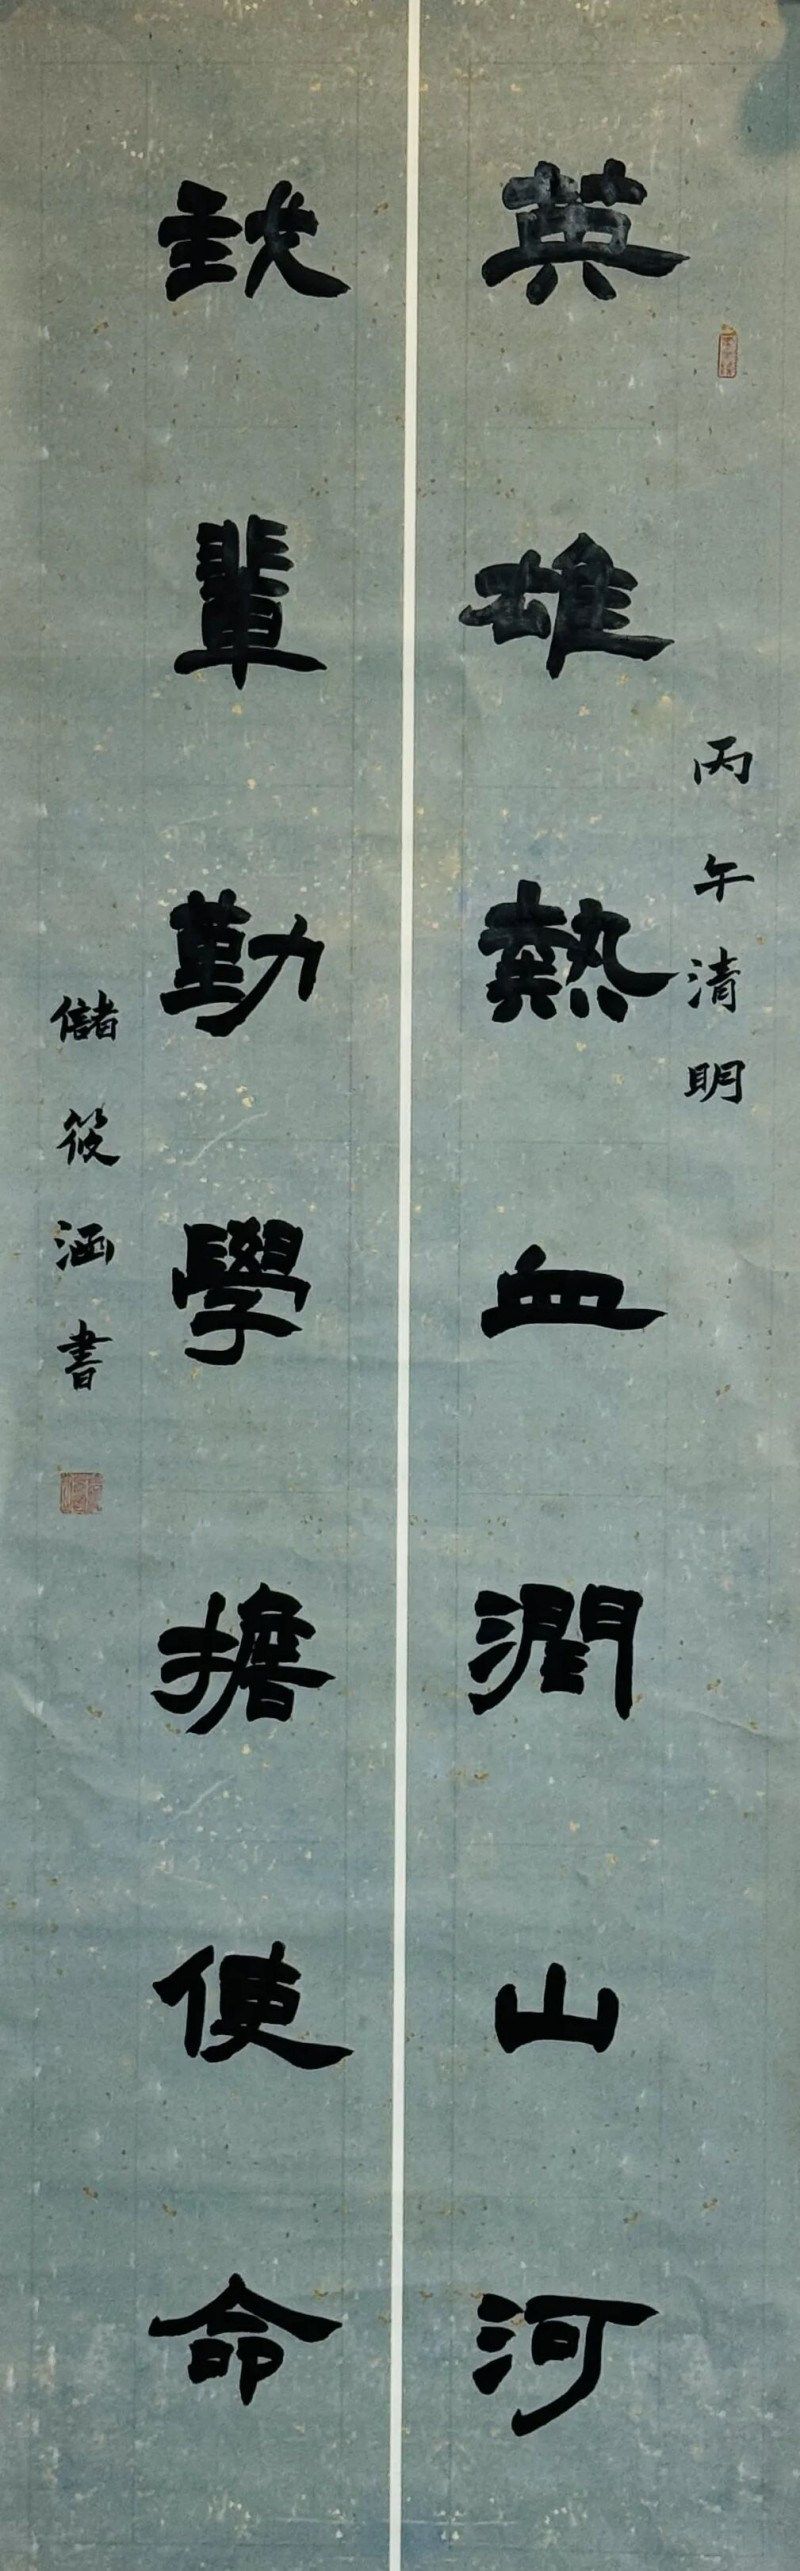 丙午清明
英雄熱血潤山河
我輩勤學擔使命
儲筱涵書